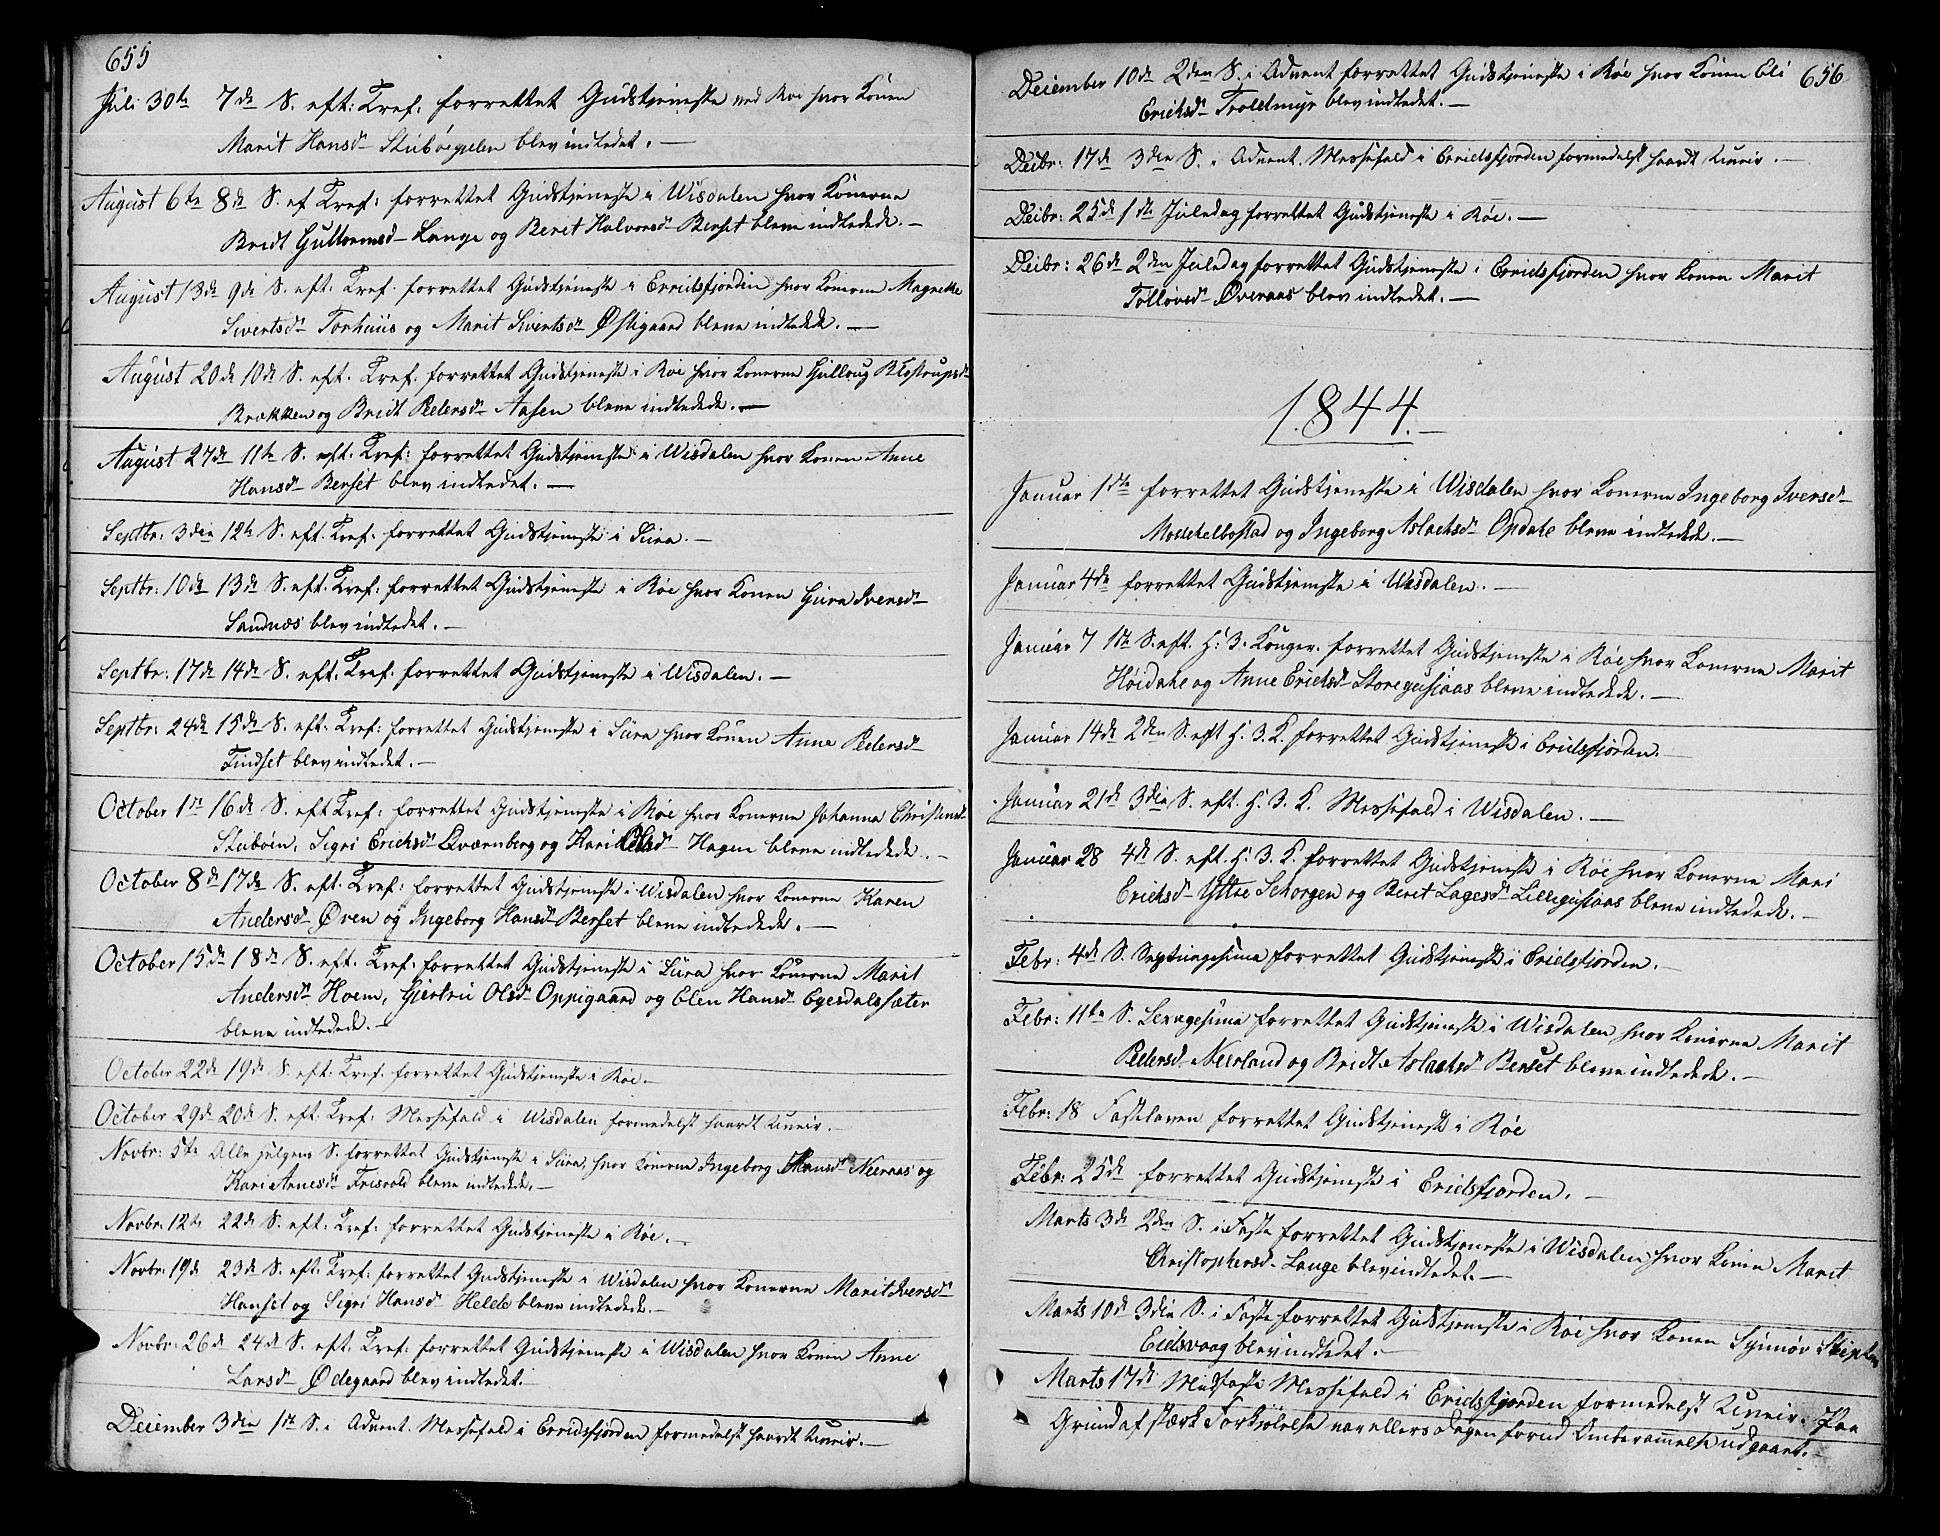 655
Juli 30te 7de S. eft. Tref: forrettet Gudstjeneste ved Røe hvor Konen
Marit Hansdr Stubøe blev indledet. —
August 6te 8de S. ef. Tref: forrettet Gudstjeneste i Wisdalen hvor Konerne
Bridt Guttormsdr Lange og Beret Halvorsdr Berset bleve indledede. —
August 13de 9de S. eft: Tref. forrettet Gudstjeneste i Erridsfjorden hvor Konerne Magnelle
Sivertsdr Torhuus og Marit Sivertsdr Østigaard bleve indledede. —
August 20de 10de S. eft. Tref. forrettet Gudstjeneste i Røe hvor Konerne Gullaug
Brækken og Bridt Pedersdr Aasen bleve indledede. —
August 27de 11te S. eft. Tref: forrettet Gudstjeneste i Wisdalen hvor Konen Anne
Hansdr Berset blev indledet. —
Septbr: 3die 12te S. eft. Tref: forrettet Gudstjeneste i Sira. —
Septbr: 10de 13de S. eft. Tref: forrettet Gudstjeneste i Røe hvor Konen Guru Iversdr
Sandnæs blev indledet. —
Septbr: 17de 14de S. eft. Tref. forrettet Gudstjeneste i Wisdalen. —
Septbr: 24de 15de S. eft. Tref: forrettet Gudstjeneste i Sira hvor Konen Anne Pedersdr
Findset blev indledet. —
October 1ste 16de S. eft. Tref: forrettet Gudstjeneste i Røe hvor Konerne Johanna Christensdr
Stubøen, Sigri Erichsdr Qværnberg og Kari Olsdr Hagen bleve indledede. —
October 8de 17de S. eft. Tref: forrettet Gudstjeneste i Wisdalen hvor Konerne Karen
Andersdr Øren og Ingeborg Hansdr Berset bleve indledede. —
October 15de 18de S. eft. Tref: forrettet Gudstjeneste i Sira hvor Konerne Marit
Andersdr Hoem, Gjertru Olsdr Oppigaard og Elen Hansdr Eqesdalssæter
bleve indledede. —
October 22de 19de S. eft: Tref. forrettet Gudstjeneste i Røe. —
October 29de 20de S. eft. Tref: Messefald i Wisdalen formedelst haardt Uveir. —
Novbr: 5te Alle helgens S. forrettet Gudstjeneste i Sira, hvor Konerne Ingeborg Hansdr Neeraas og
Kari Arnesdr Frisvold bleve indledede. —
Novbr: 12te 22de S. eft: Tref: forrettet Gudstjeneste i Røe. —
Novbr: 19de 23de S. eft: Tref: forrettet Gudstjeneste i Wisdalen hvor Konerne Marit Iversdr
Hanset og Sigri Hansdr Helde bleve indledede. —
Novbr: 26de 24de S. eft. Tref: forrettet Gudstjeneste i Wisdalen hvor Konen Anne
Larsdr Ødegaard blev indledet. —
December 3die 1ste S. i Advent. Messefald i Erridsfjorden formedelst haardt Uveir. —
656
December 10de 2den S. i Advent forrettet Gudstjeneste i Røe hvor Konen Eli
Erichsdr Troldmyr blev indledet. —
Decbr: 17de 3die S. i Advent. Messefald i Erridsfjorden formedelst haardt Uveir. —
Decbr: 25de 1ste Juledag forrettet Gudstjeneste i Røe. —
Decbr: 26de 2den Juledag forrettet Gudstjeneste i Erridsfjorden hvor Konen Marit
Tollevsdr Øveraas blev indledet. —
1844. —
Januar 1ste forrettet Gudstjeneste i Wisdalen hvor Konerne Ingeborg Iversdr
Mochelbostad og Ingeborg Aslachsdr Opdahl bleve indledede. —
Januar 4de forrettet Gudstjeneste i Wisdalen. —
Januar 7 1ste S. eft. H: 3. Konger. forrettet Gudstjeneste i Røe hvor Konerne Marit
Høidahl og Anne Erichsdr Storegusjaas bleve indledede. —
Januar 14de 2den S. eft H. 3. K. forrettet Gudstjeneste i Eridsfjorden. —
Januar 21de 3die S. eft. H. 3. K. Messefald i Wisdalen. —
Januar 28 4de S. eft. H. 3. K. forrettet Gudstjeneste i Røe hvor Konerne Mari
Erichsdr Yttre Schorgen og Beret Lagesdr Lillegusiaas bleve indledede. —
Febr: 4de S. Septuagesima forrettet Gudstjeneste i Eridsfjorden. —
Febr: 11te S. Sexagesima forrettet Gudstjeneste i Wisdalen hvor Konerne Marit
Pedersdr Neerland og Bridt Aslachsdr Berset bleve indledede. —
Febr: 18 Fastelaven forrettet Gudstjeneste i Røe
Febr: 25de forrettet Gudstjeneste i Eridsfjorden. —
Marts 3de 2den S. i Faste forrettet Gudstjeneste i Wisdalen, hvor Konen Marit
Christophersdr Lange blev indledet. —
Marts 10de 3die S. i Faste forrettet Gudstjeneste i Røe hvor Konen Synnøv
Eidsvaag blev indledet. —
Marts 17de Midfaste Messefald i Eridsfjorden formedelst Uveir. Paa
Grund af stærk Forkjølelse var ellers Dagen forud Ombrammelse udgaaet. —